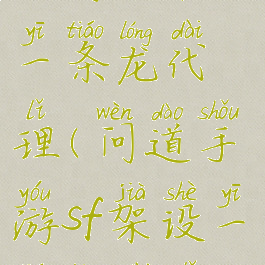 yī tiáo lóng dài
一条龙代
lǐ wèn dào shǒu
理(问道手
yóu jià shè yī
游sf架设一